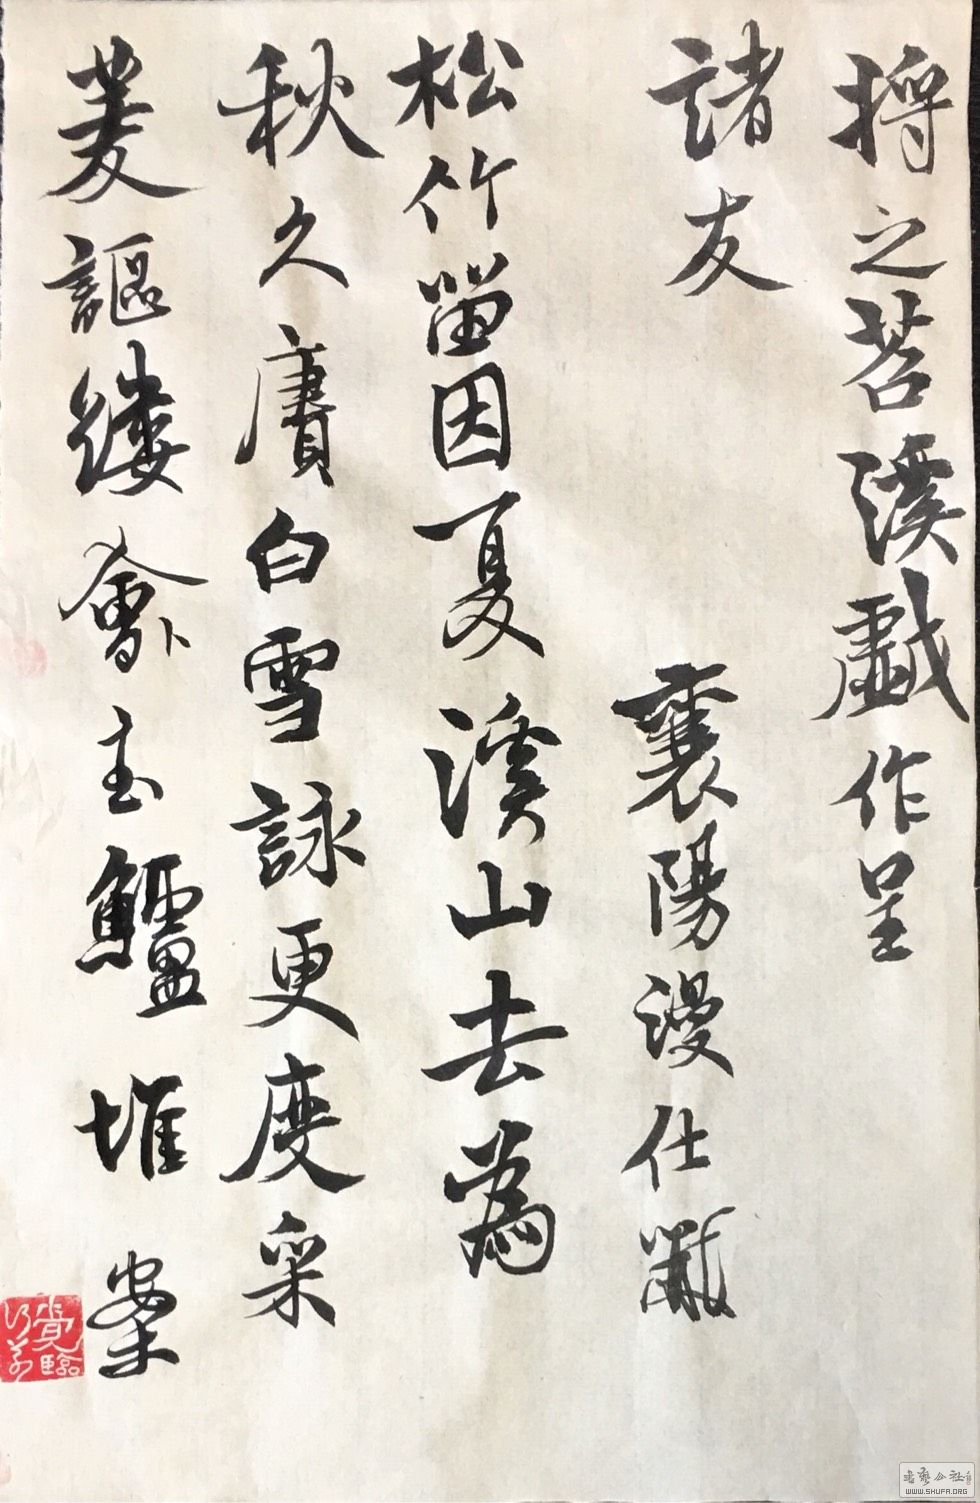 将之苕溪戲作呈
諸友
襄陽漫仕黻
松竹留因夏溪山去為
秋久賡白雪詠更度采
菱謳縷會玉鱸堆案
覺臨
WWW.SHUFA.ORG